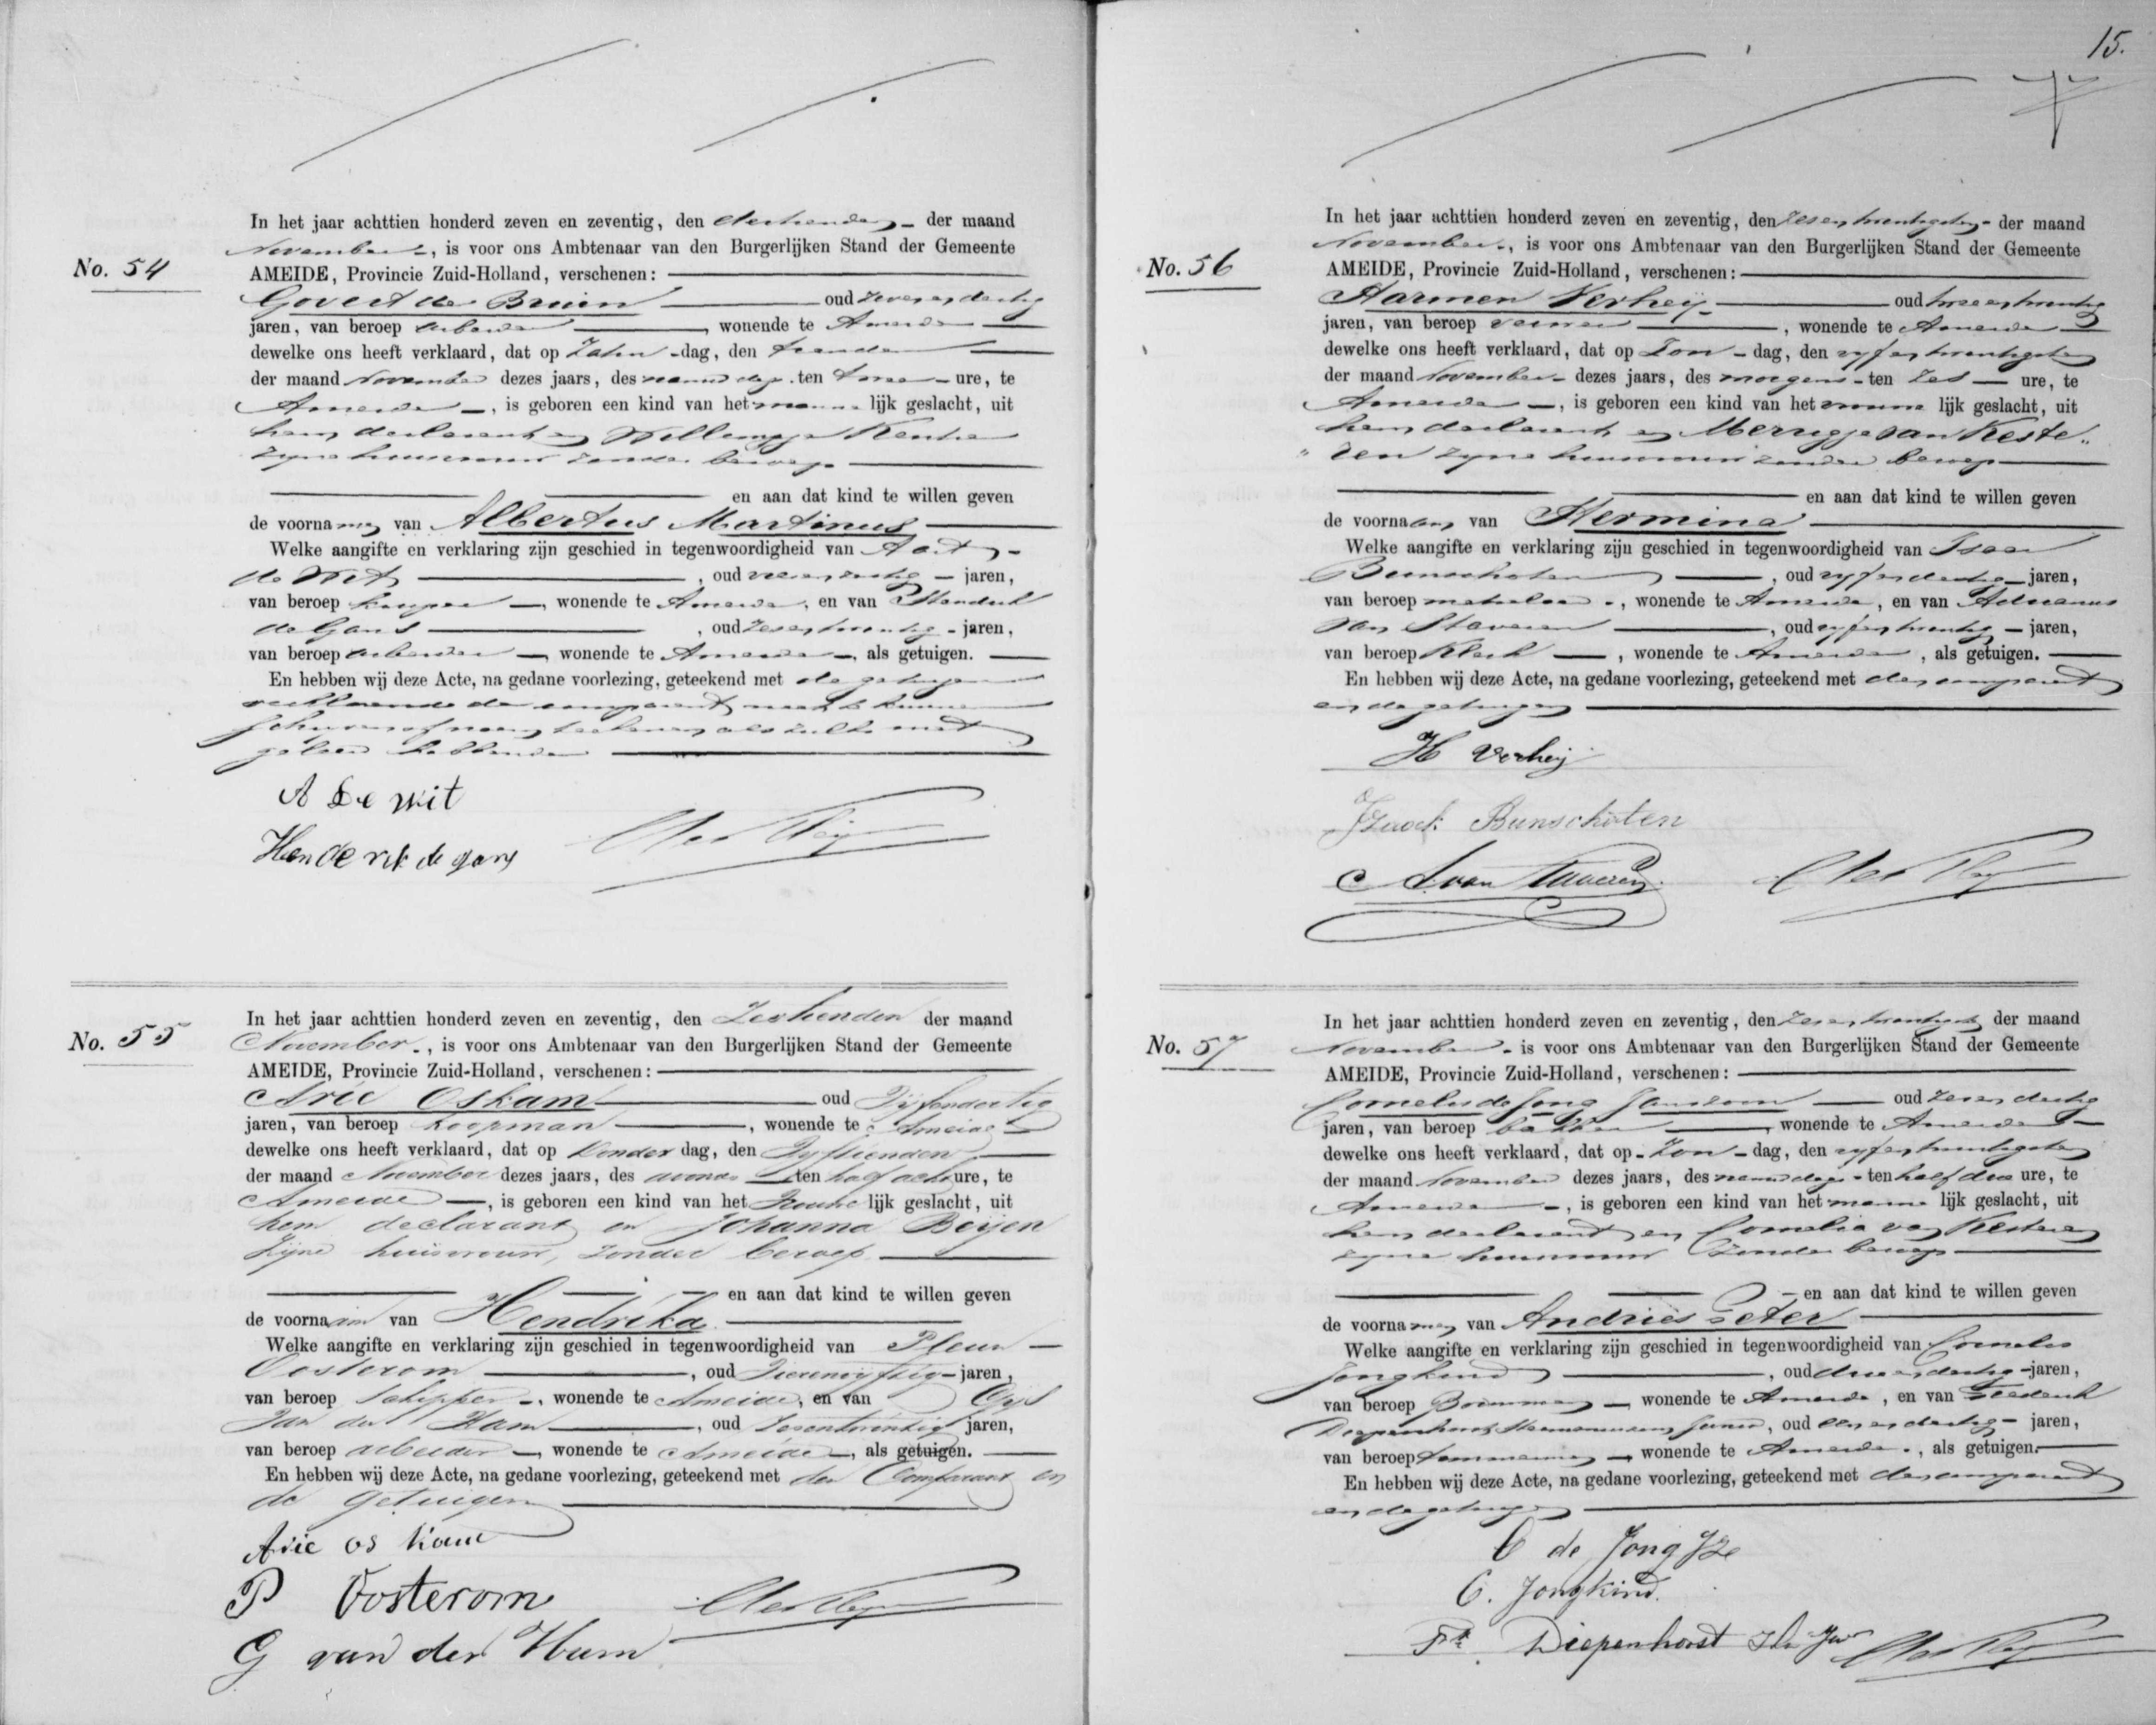 No. 54
In het jaar achttien honderd zeven en zeventig, den dertienden der maand
November, is voor ons Ambtenaar van den Burgerlijken Stand der Gemeente
AMEIDE, Provincie Zuid-Holland, verschenen:
Govert de Bruin oud zeven en dertig
jaren, van beroep arbeider, wonende te Ameide
dewelke ons heeft verklaard, dat op Zatur-dag, den tienden
der maand November dezes jaars, des namiddags ten twee ure, te
Ameide, is geboren een kind van het manne lijk geslacht, uit
hem declarant en Willempje
zijne huisvrouw zonder beroep
en aan dat kind te willen geven
de voornamen van Albertus Martinus
Welke aangifte en verklaring zijn geschied in tegenwoordigheid van Aart
de Wit, oud jaren,
van beroep, wonende te Ameide, en van Hendrik
de Gans, oud zes en twintig jaren,
van beroep arbeider, wonende te Ameide, als getuigen.
En hebben wij deze Acte, na gedane voorlezing, geteekend met de getuigen
verklarende de comparant niet te kunnen
schrijven of naamteekenen als zulks niet
geleerd hebbende
A de wit
Henderik de gans
No. 55
In het jaar achttien honderd zeven en zeventig, den Zestienden der maand
November, is voor ons Ambtenaar van den Burgerlijken Stand der Gemeente
AMEIDE, Provincie Zuid-Holland, verschenen:
Arie Oskam oud Vijfendertig
jaren, van beroep koopman, wonende te Ameide
dewelke ons heeft verklaard, dat op Donder dag, den Vijftienden
der maand November dezes jaars, des avonds ten half acht ure, te
Ameide, is geboren een kind van het Vrouwe lijk geslacht, uit
hem declarant en Johanna Beijen
zijne huisvrouw, zonder beroep
en aan dat kind te willen geven
de voornaam van Hendrika
Welke aangifte en verklaring zijn geschied in tegenwoordigheid van Pleun
Oosterom, oud Vierenvijftig jaren,
van beroep Schipper, wonende te Ameide, en van Gijs
Van der Ham, oud Zesentwintig jaren,
van beroep arbeider, wonende te Ameide, als getuigen.
En hebben wij deze Acte, na gedane voorlezing, geteekend met den Comparant en
de getuigen
Arie os kam
P Oosterom
G van der Ham
15.
No. 56
In het jaar achttien honderd zeven en zeventig, den zes en twintigsten der maand
November, is voor ons Ambtenaar van den Burgerlijken Stand der Gemeente
AMEIDE, Provincie Zuid-Holland, verschenen:
Harmen Verheij oud twee en twintig
jaren, van beroep, wonende te Ameide
dewelke ons heeft verklaard, dat op Zon-dag, den vijf en twintigsten
der maand November dezes jaars, des morgens ten zes ure, te
Ameide, is geboren een kind van het vrouwe lijk geslacht, uit
hem declarant en Merrigje van Keste„
„ren zijne huisvrouw zonder beroep
en aan dat kind te willen geven
de voornaam van Hermina
Welke aangifte en verklaring zijn geschied in tegenwoordigheid van Isaac
Bunschoten, oud vijf en dertig jaren,
van beroep metselaar, wonende te Ameide, en van Adrianus
van Staveren, oud vijf en twintig jaren,
van beroep Klerk, wonende te Ameide, als getuigen.
En hebben wij deze Acte, na gedane voorlezing, geteekend met den comparant
en de getuigen
H Verheij
Izaak Bunschoten
A. van Staveren
No. 57
In het jaar achttien honderd zeven en zeventig, den zes en twintigsten der maand
November is voor ons Ambtenaar van den Burgerlijken Stand der Gemeente
AMEIDE, Provincie Zuid-Holland, verschenen:
Cornelis de Jong Janszoon oud zes en dertig
jaren, van beroep bakker, wonende te Ameide
dewelke ons heeft verklaard, dat op Zon-dag, den vijf en twintigsten
der maand November dezes jaars, des namiddags ten half drie ure, te
Ameide, is geboren een kind van het manne lijk geslacht, uit
hem declarant en Cornelia van Kesteren
zijne huisvrouw zonder beroep
en aan dat kind te willen geven
de voornamen van Andries Peter
Welke aangifte en verklaring zijn geschied in tegenwoordigheid van Cornelis
Jongkind, oud drie en dertig jaren,
van beroep Bouwman, wonende te Ameide, en van Frederik
Diepenhorst Hermanuszoon Junior, oud een en dertig jaren,
van beroep timmerman, wonende te Ameide, als getuigen.
En hebben wij deze Acte, na gedane voorlezing, geteekend met den comparant
en de getuigen
C de Jong Jze
C. Jongkind.
Fk. Diepenhorst Hz Jur